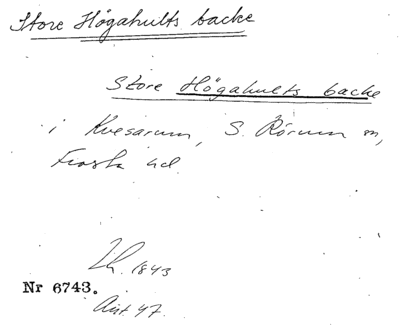 Store Högahults backe
Store Högahults backe
i Kvesarum, S. Rörum sn,
Frosta hd.
1843
Nr 6743.
47.